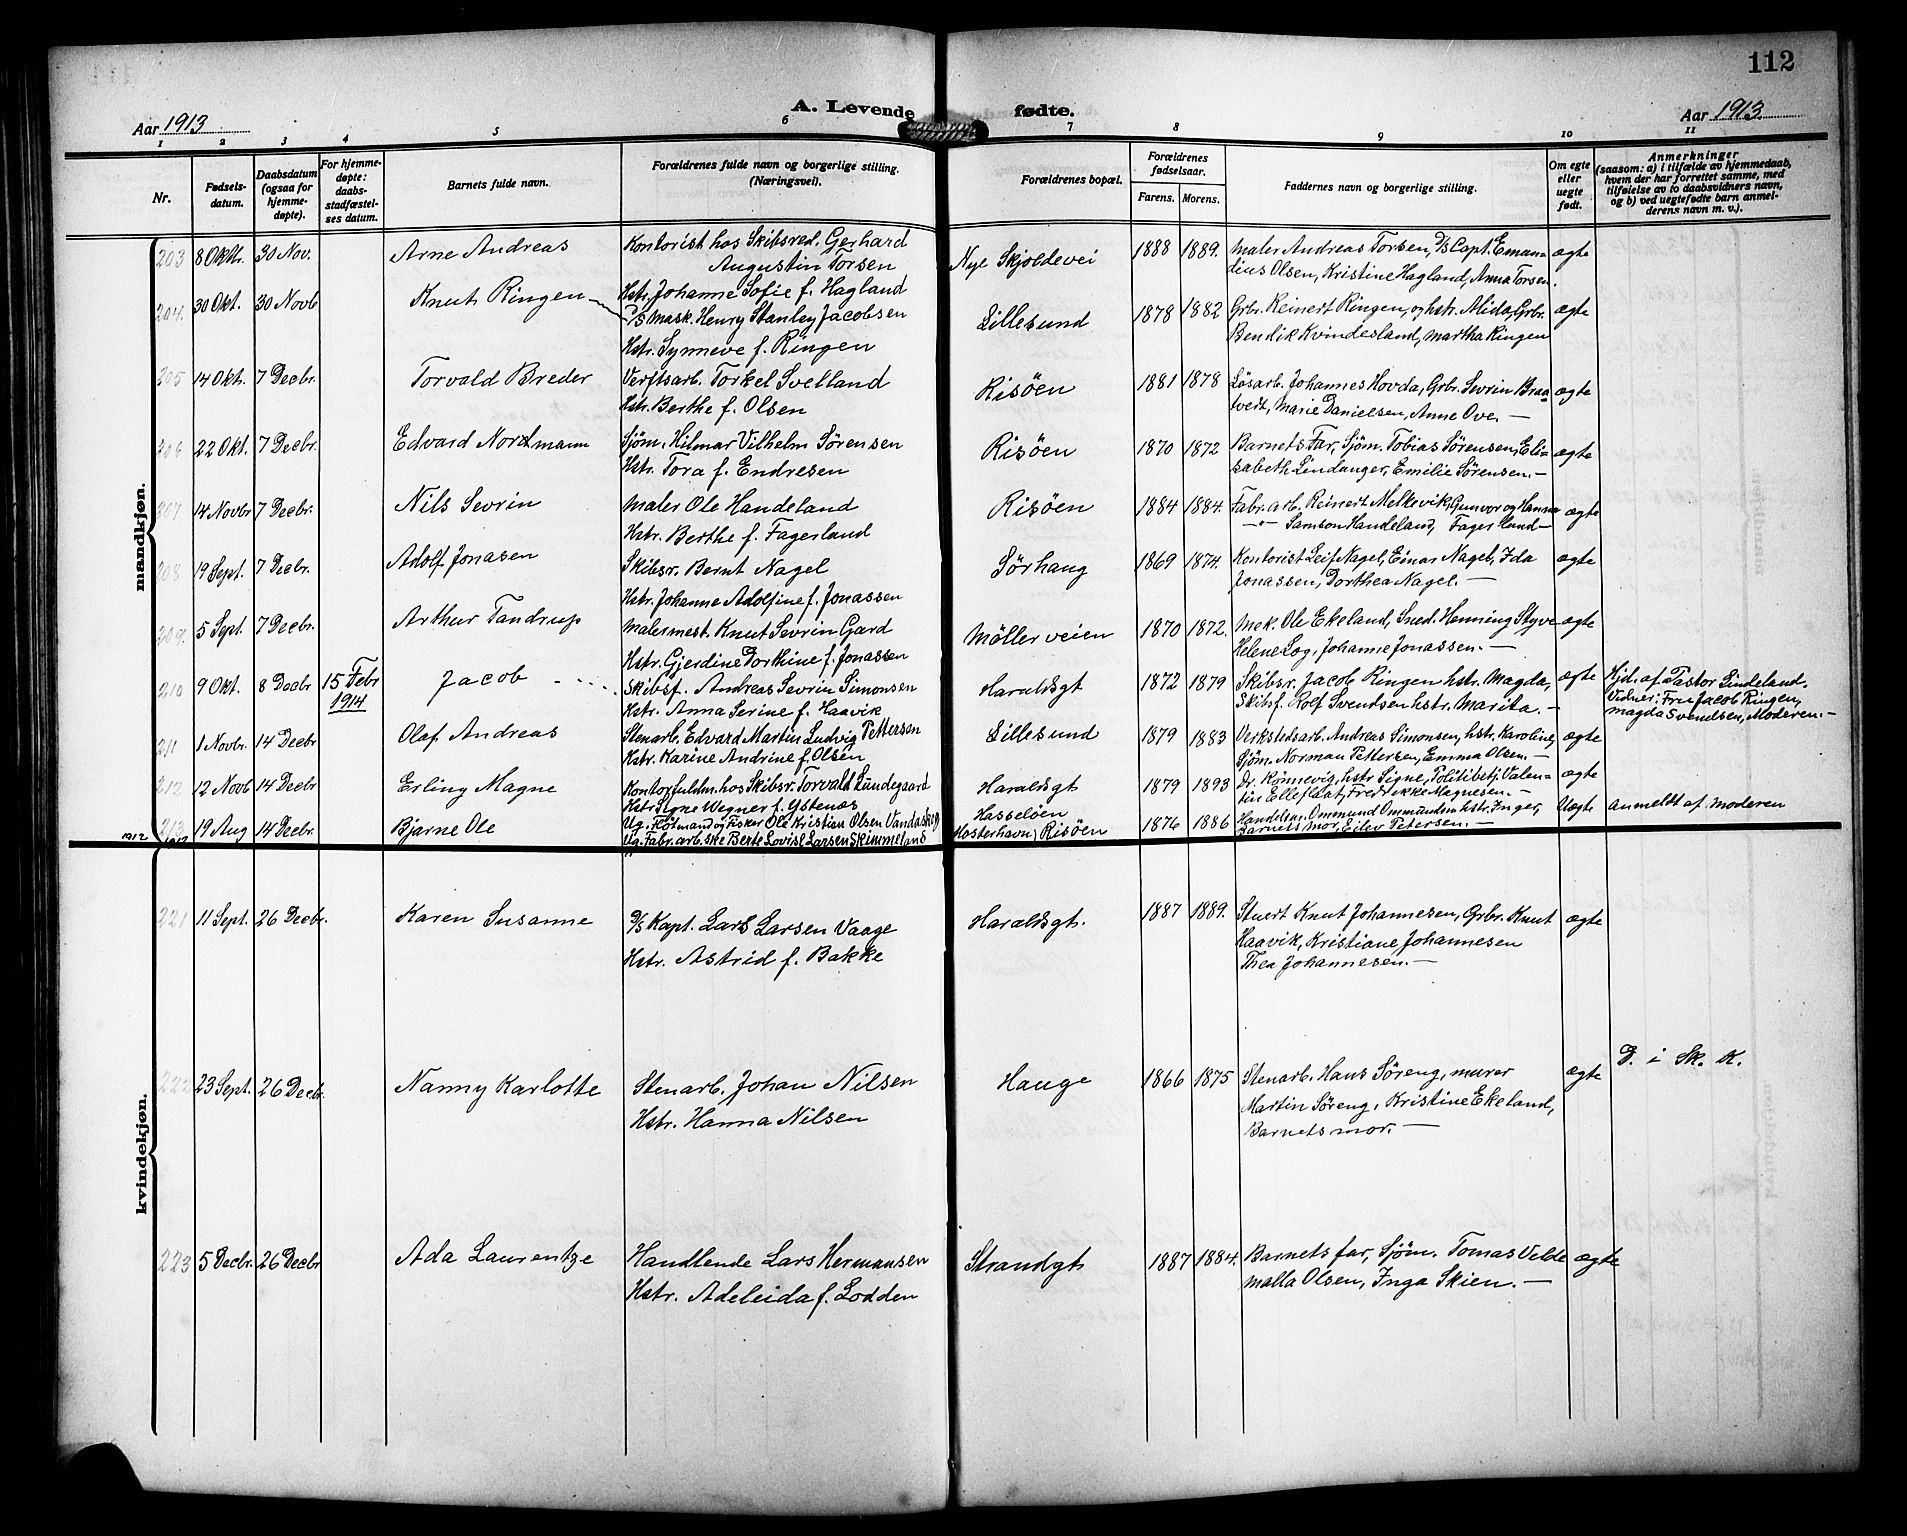 112
A. Levende fødte.
Aar 1913
Aar 1913
1 2 3 4 5 6 7 8 9 10 11
Nr.
Fødsels-
datum.
Daabsdatum
(ogsaa for
hjemme-
døpte).
For hjemme-
døpte:
daabs-
stadfæstel-
ses datum.
Barnets fulde navn.
Forældrenes fulde navn og borgerlige stilling.
(Næringsvei).
Forældrenes bopæl.
Forældrenes
fødselsaar.
Farens. Morens.
Faddernes navn og borgerlige stilling.
Om egte
eller
uegte
født.
Anmerkninger
(saasom: a) i tilfælde av hjemmedaab,
hvem der har forrettet samme, med
tilføielse av to daabsvidners navn,
og b) ved uegtefødte barn anmel-
derens navn m. v.).
mandkjøn.
203 8 Oktr. 30 Nov. Arne Andreas Kontorist hos Skibsred. Gerhard
Augustin Torsen
Hstr. Johanne Sofie f. Hagland
Nye Skjoldevei 1888 1889. Maler Andreas Torsen, D/S Capt. Eman-
dius Olsen, Kristine Hagland, Anna Torsen. ægte
204. 30 Okt. 30 Novb Knut Ringen D/S Mask. Henry Stanley Jacobsen
Hstr. Synneve f. Ringen
Lillesund 1878 1882 Grbr. Reinert Ringen, og hstr. Alida, Grbr.
Bendik Kvindesland, Martha Ringen ægte
205 14 Okt. 7 Decbr. Torvald Breder Verftsarb. Torkel Svelland
Hstr. Berthe f. Olsen
Risöen 1881 1878 Løsarb. Johannes Hovda, Grbr. Sevrin Braa-
tvedt, Marie Danielsen, Anne Ove. — ægte
206 22 Okt. 7 Decbr. Edvard Nordmann Sjöm. Hilmar Vilhelm Sørensen
Hstr. Tora f. Endresen
Risöen 1870 1872 Barnets Far, Sjöm. Tobias Sørensen, Eli-
sabeth Lindanger, Emilie Sørensen. — ægte
207 14 Novbr 7 Decbr. Nils Sevrin Maler Ole Handeland
Hstr. Berthe f. Fagerland
Risöen 1884 1884. Fabr. arb. Reinert Melkevik, Gunvor og Hanna
—"— Samson Handeland, Fagerland — ægte
208 19 Sept. 7 Decbr. Adolf Jonasen Skibsr. Bernt Nagel
Hstr. Johanne Adolfine f. Jonassen
Sörhaug 1869 1874. Kontorist Leif Nagel, Einar Nagel, Ida
Jonassen, Dorthea Nagel. — ægte
209. 5 Sept. 7 Decbr. Arthur Tandrup Malermest. Knut Sevrin Gard
Hstr. Gjerdine Dorthine f. Jonassen
Möllerveien 1870 1872. Mek. Ole Ekeland, Sned. Henning Styve
Helene Log, Johanne Jonassen. — ægte
210 9 Okt. 8 Decbr 15 Febr
1914
Jacob Skibsf. Andreas Sevrin Simonsen
Hstr. Anna Serine f. Haavik
Haraldsgt 1872 1879 Skibsr. Jacob Ringen hstr. Magda,
Skibsf. Rolf Svendsen hstr. Marita. — ægte
Hjd. af Pastor Lindeland.
Vidner: Fru Jacob Ringen,
Magda Svendsen, Moderen. —
211 1 Novbr. 14 Decbr Olaf Andreas Stenarb. Edvard Martin Ludvig Pettersen
Hstr. Karine Andrine f. Olsen
Lillesund 1879 1883 Verkstedsarb. Andreas Simonsen, hstr. Karoline,
Sjöm. Norman Pettersen, Emma Olsen. — ægte
212 12 Novb 14 Decbr Erling Magne Kontorfuldm. hos Skibsr. Torvald Lundegaard
Hstr. Signe Wegner f. Ystenæs
Haraldsgt 1879 1893 Dr. Rönnevig, hstr. Signe, Politibetj. Valen-
tin Elleflaat, Fredrikke Magnesen. — ægte
213. 19 Aug 14 Decbr. Bjarne Ole Ug. Fötmand og Fisker Ole Kristian Olsen Vandaskog
Ug. Fabr. arb. ske Berte Lovise Larsen Skimmeland
Hasselöen
Hosterhavn, Risöen 1876 1886 Handelsm. Ommund Ommundsen hstr. Inger,
Barnets Mor, Eilev Petersen. — Uægte Anmeldt af moderen
kvindekjøn.
221 11 Sept. 26 Decbr. Karen Susanne D/S Kapt. Lars Larsen Vaage
Hstr. Astrid f. Bakke
Haraldsgt. 1887 1889. Stuert Knut Johannesen, Grbr. Knut
Haavik, Kristiane Johannesen
Thea Johannesen. — ægte
222 23 Sept. 26 Decbr. Nanny Karlotte Stenarb. Johan Nilsen
Hstr. Hanna Nilsen
Hauge 1866 1875 Stenarb. Hans Söreng, murer
Martin Söreng, Kristine Ekeland,
Barnets mor. — ægte D. i Sk. K.
223 5 Decbr. 26 Decbr Ada Laurentze Handlende Lars Hermansen
Hstr. Adeleida f. Lodden
Strandgt 1887 1884. Barnets far, Sjöm. Tomas Velde
Malla Olsen, Inga Skien. — ægte